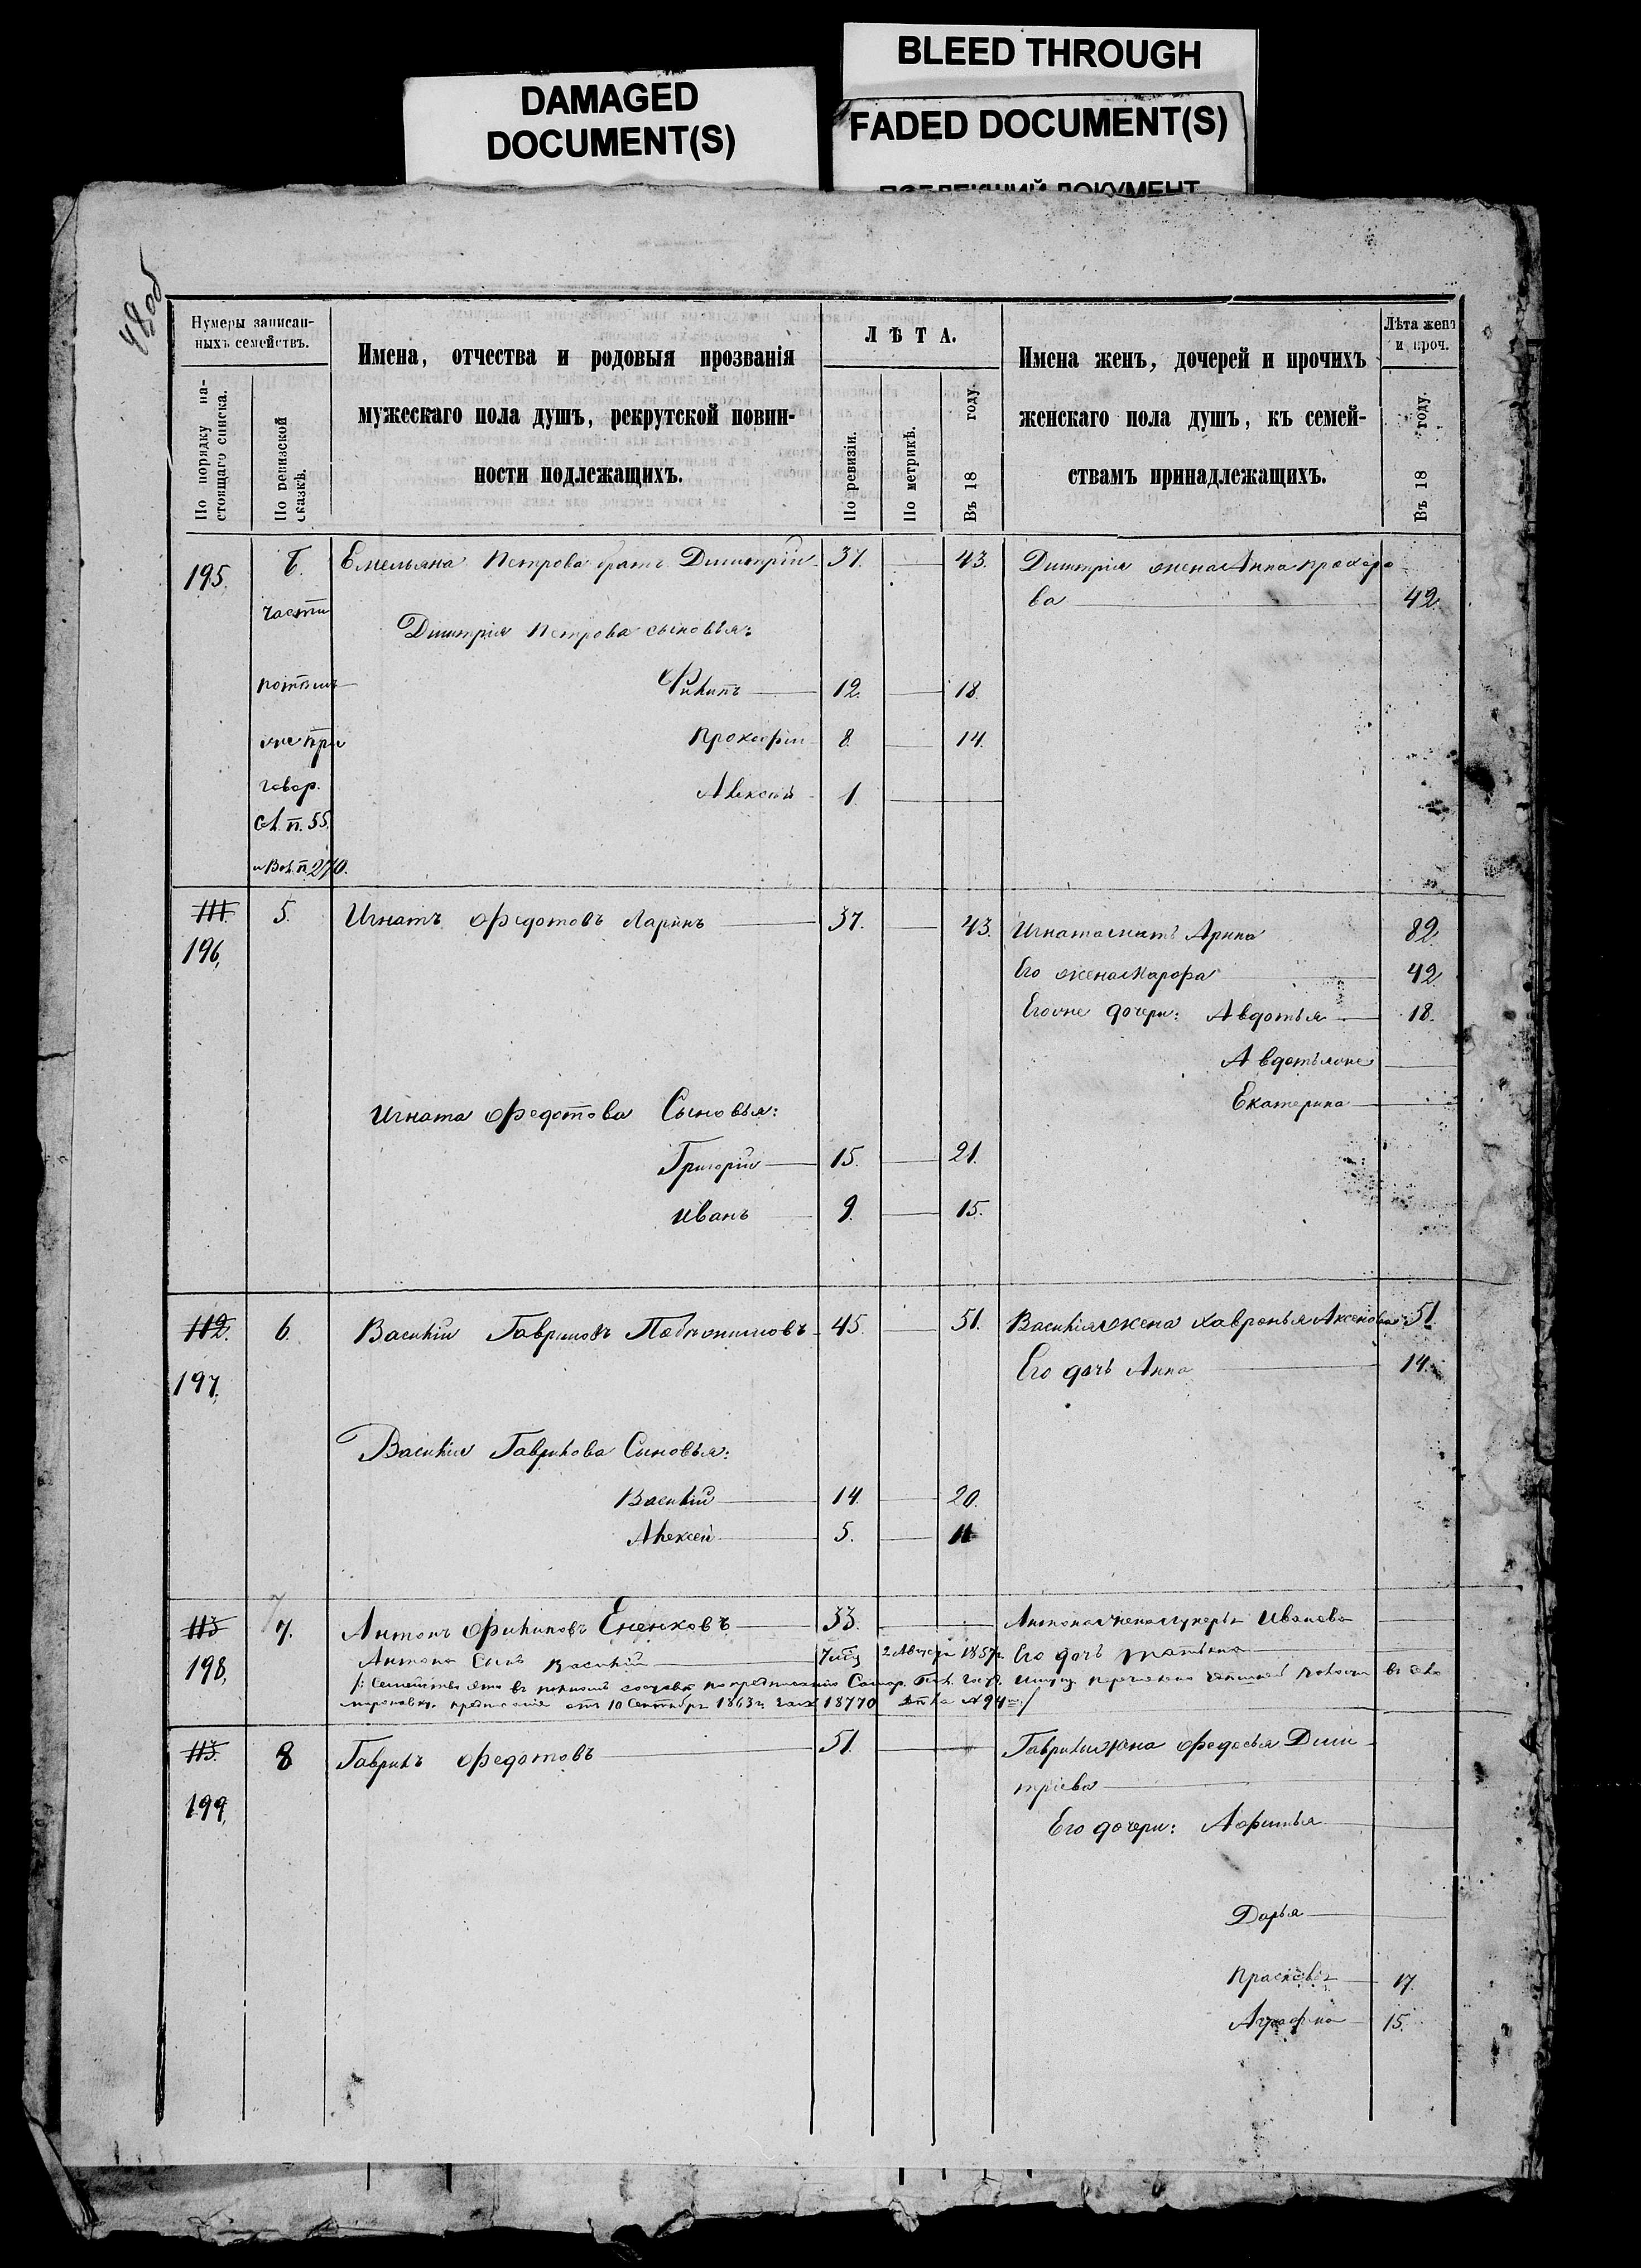 DAMAGED
DOCUMENT(S)
BLEED THROUGH
FADED DOCUMENT(S)
48 об
Нумеры записан-
ныхъ семействъ.
По порядку на-
стоящаго списка.
По ревизской
сказкѣ.
Имена, отчества и родовыя прозванія
мужескаго пола душъ, рекрутской повин-
ности подлежащихъ.
ЛѢТА.
По ревизіи.
По метрикѣ.
Въ 18 году.
Имена женъ, дочерей и прочихъ
женскаго пола душъ, къ семей-
ствамъ принадлежащихъ.
Лѣта женъ
и проч.
Въ 18 году.
195. Емельяна Петрова братъ Димитрій 37. 43. Димитрія жена Анна Прохоро
части ва 42.
Димитрія Петрова сыновья:
Филипъ 12. 18.
Прокофій 8. 14.
говор. Алексѣй 1.
п. 55.
п. 270.
111. 5. Игнатъ Федотовъ Ларинъ 37. 43. Игната мать Арина 82.
196, Его жена Марфа 42.
Его же дочери: Авдотья 18.
Авдотья же
Екатерина
Игната Федотова Сыновья:
Григорій 15. 21.
Иванъ 9. 15.
112. 6. Василій Гавриловъ 45. 51. Василія жена Хавронья Аксенова 51.
197, Его дочь Анна 14.
Василія Гаврилова Сыновья:
Василій 14. 20.
Алексей 5. 11
113 7. Антонъ Филиповъ Ененковъ 33. Антона жена Иванова
198, Антона Сынъ Василій 2 Августа 1857г. Его дочь Татьяна
/: Семейство это въ полномъ составѣ по предписанію Самар. Имущ. перечислено
отъ 10 Сентября 1863 г. за № 18770 № 94 :/
113. 8 Гаврилъ Федотовъ 51. Гаврила жена Федосья Дими
199, тріева
Его дочери: Афимья
Дарья
Прасковья 17.
Аграфена 15.